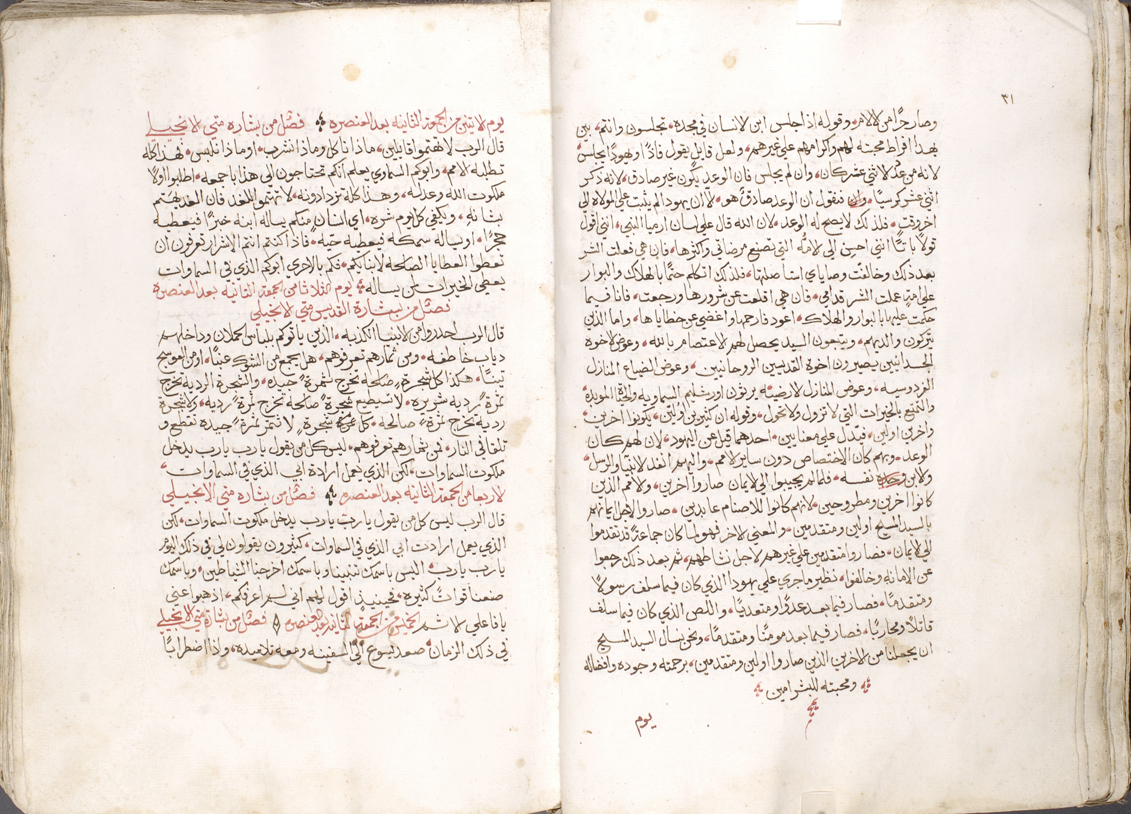 ٣١
وصار حرًا من الالام وقوله اذا جلس ابن الانسان في مجده تجلسون وانتم بين
بهذا افراط محبته لهم واكرامهم على غيرهم ولعل قايل يقول فاذًا ويهودا يجلس
لانه موعد الاثني عشر كان وان لم يجلس فان الوعد يكون غير صادق لانه ذكر
اثني عشر كرسيًا فنقول ان الوعد صادق هو لان يهودا لم يثبت على الموالاه الى
اخر وقت فلذلك لا يصح له الوعد لان الله قال على لسان ارميا النبي انني اقول
قولًا باتًا انني احسن الى الامه التي تصنع مرضاتي واكثرها فان هي فعلت الشر
بعد ذلك وخالفت وصاياي لما صلتها فلذلك اتكلم حتمًا بالهلاك والبوار
على امة عملت الشر قدامي فان هي اقلعت عن شرورها ورجعت فانا فيما
حكمت عليها بالبوار والهلاك اعود فارحمها واغضي عن خطاياها واما الذين
يتركون والديهم ويتبعون السيد يحصل لهم الاعتصام بالله وعوض الاخوة
الجسدانيين يصيرون اخوة القديسين الروحانيين وعوض الضياع المنازل
الفردوسيه وعوض المنازل الارضيه يرثون اورشليم السماويه والحياة الموبده
والتمتع بالخيرات التي لا تزول ولا تحول وقوله ان كثيرين اولين يكونوا اخرين
واخرين اولين فيدل على معنايين احدهما قيل عن اليهود لان لهم كان
الوعد وبهم كان الاختصاص دون ساير الامم واليهم انفد الانبيا والرسل
ولابن وحده نفسه فلما لم يجيبوا الى الايمان صاروا اخرين والامم الذين
كانوا اخرين ومطروحين لانهم كانوا للاصنام عابدين صاروا لاجل ايمانهم
بالسيد المسيح اولين ومتقدمين والمعنى الاخر فهو لما كان جماعة قد تقدموا
الى الايمان فصاروا متقدمين على غيرهم لاجل نشاطهم ثم بعد ذلك رجعوا
عن الامانه وخالفوا نظير ما جرى على يهودا الذي كان فيما سلف رسولًا
ومتقدمًا فصار فيما بعد عدوًا ومتعديًا واللص الذي كان فيما سلف
قاتلًا ومحاربًا فصار فيما بعد مومنًا ومتقدمًا ونحن نسال السيد المسيح
ان يجعلنا من الاخرين الذين صاروا اولين ومتقدمين برحمته وجوده وافضاله
ومحبته للبشر امين
يوم
يوم الاتنين من الجمعة التانيه بعد العنصره فصل من بشاره متي الانجيلي
قال الرب لا تهتموا قايلين ماذا ناكل وماذا نشرب او ماذا نلبس فهذا كله
تطلبه الامم وابوكم السماوي يعلم انكم محتاجون الى هذا باجمعه اطلبوا اولًا
ملكوت الله وعدله وهذا كله تزدادونه لا تهتموا للغد فان الغد يهتم
بشانه ويكفي كل يوم شره اي انسان منكم يساله ابنه خبزًا فيعطيه
حجرًا او يساله سمكه فيعطيه حيه فاذا كنتم انتم الاشرار تعرفون ان
تعطوا العطايا الصالحه لابنايكم فكم بالاحرى ابوكم الذي في السماوات
يعطي الخيرات لمن يساله يوم الثلاثا من الجمعة الثانية بعد العنصره
فصل من بشارة القديس متي الانجيلي
قال الرب احدروا من الانبيا الكذبه الذين ياتوكم بلباس الحملان وداخلهم
دياب خاطفه ومن ثمارهم تعرفوهم هل يجمع من الشوك عنبًا او من العوسج
تينًا هكذا كل شجرة صالحه تخرج ثمرة جيده والشجرة الرديه تخرج
ثمرة رديه شريره لا تستطيع شجرة صالحه تخرج ثمرة رديه ولا شجرة
رديه تخرج ثمرة صالحه كل شجرة لا تتمر ثمرة جيده تقطع و
تلقا في النار فمن ثمارهم تعرفوهم ليس كل من يقول يا رب يا رب يدخل
ملكوت السماوات لكن الذي يعمل ارادة ابي الذي في السماوات
لاربعا من الجمعة الثانيه بعد العنصره فصل من بشاره متي الانجيلي
قال الرب ليس كل من يقول يا رب يا رب يدخل ملكوت السماوات لكن
الذي يعمل ارادت ابي الذي في السماوات كثيرون يقولون لي في ذلك اليوم
يا رب يا رب اليس باسمك تنبينا وباسمك اخرجنا الشياطين وباسمك
صنعنا قوات كثيره فحينيذ اقول لهم اني لم اعرفكم اذهبوا عني
يا فاعلي الاثم الخميس من الجمعة الثانيه بعد العنصره فصل من بشارة متي الانجيلي
في ذلك الزمان صعد يسوع الى السفينه ومعه تلاميده واذا اضطرابًا